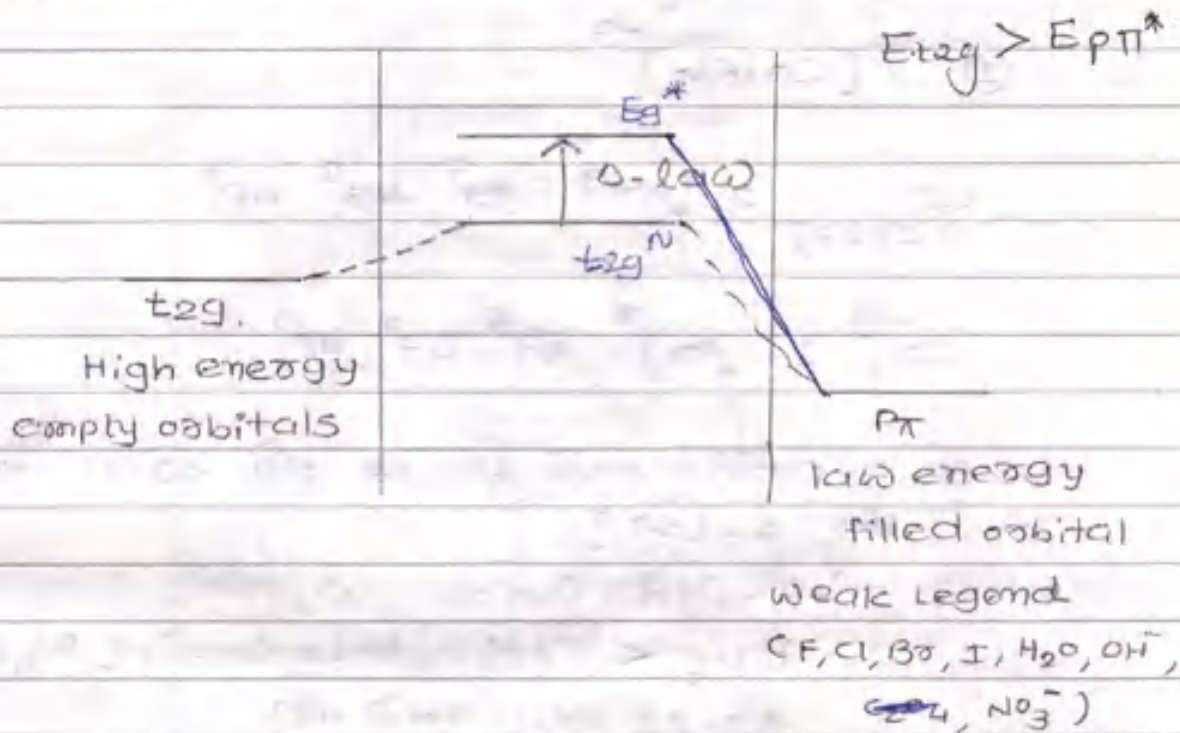 Et2g > Epπ*
Eg*
Δ-low
t2gᴺ
t2g.
High energy
empty orbitals
Pπ
law energy
filled orbital
weak Legend
(F, Cl, Br, I, H₂O, OH⁻,
NO₃⁻)